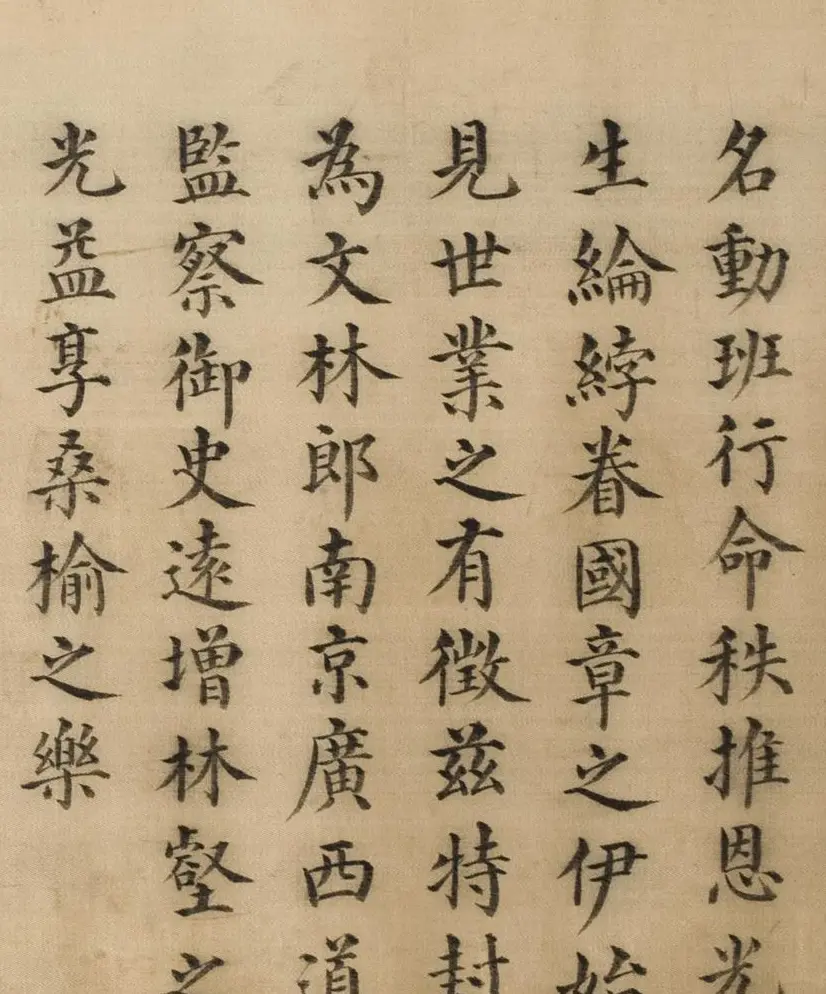 名動班行命秩推恩光
生綸綍眷國章之伊始
見世業之有徵茲特封
為文林郎南京廣西道
監察御史遠增林壑之
光益享桑榆之樂